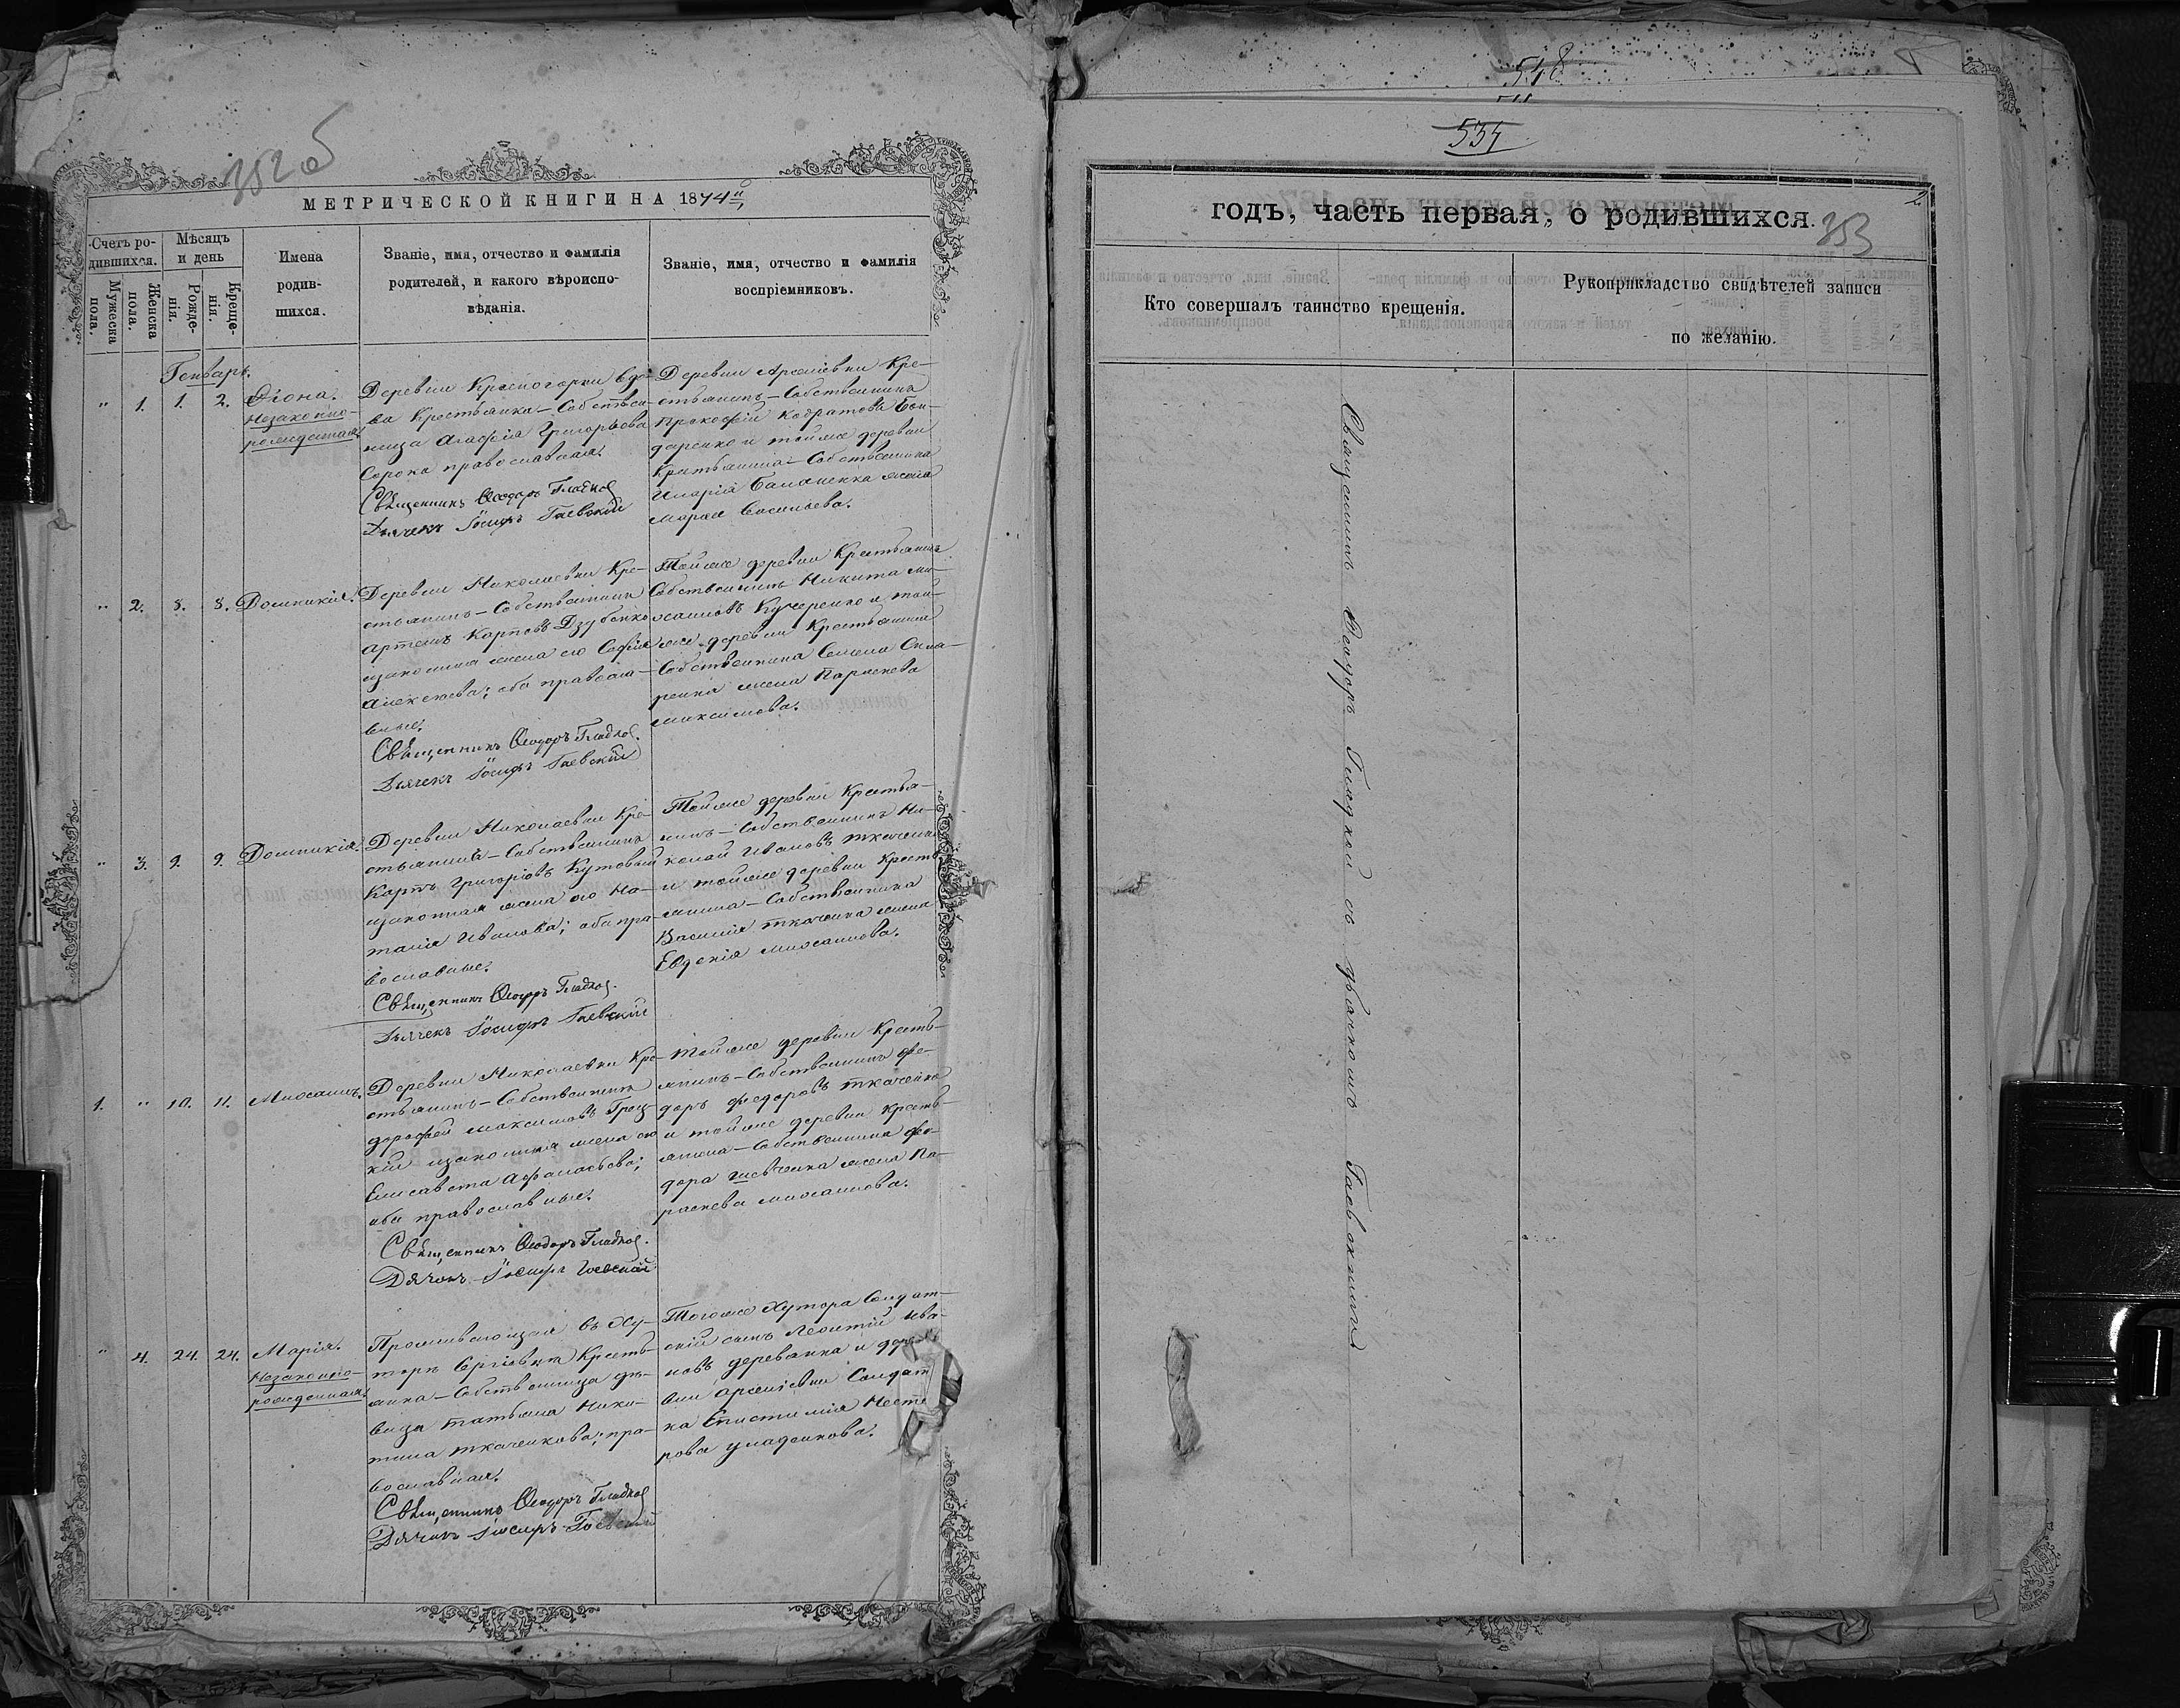 352 об
МЕТРИЧЕСКОЙ КНИГИ НА 1874й
Счетъ ро-
дившихся.
Мужеска
пола.
Женска
пола.
Мѣсяцъ
и день
Рожде-
нія.
Креще-
нія.
Имена
родив-
шихся.
Званіе, имя, отчество и фамилія
родителей, и какого вѣроиспо-
вѣданія.
Званіе, имя, отчество и фамилія
воспріемниковъ.
Генварь.
" 1. 1. 2.
Незаконно-
рожденная.
Деревни Красногорки
ва Крестьянка-Собствен-
ница Агафія Григорьева
Сорока православная.
Священникъ Ѳеодоръ Гладкой
Дьячекъ Іосифъ Гаевскій
Деревни Арсеніевки Кре-
стьянинъ-Собственникъ
Прокофій Кодратовъ Бон-
даренко и тойже деревни
Крестьянина-Собственника
Иларіа жена
Марія Васильева.
" 2. 8. 8. Домникія.
Деревни Николаевки Кре-
стьянинъ-Собственникъ
Артемъ Карповъ Дзубенко
изаконная жена его Софія
Алексѣева; оба православ-
ные.
Священникъ Ѳеодоръ Гладкой.
Дьячекъ Іосифъ Гаевскій
Тойже деревни Крестьянинъ
Собственникъ Никита Ми-
хаиловъ Кучеренко и той-
же деревни Крестьянина
Собственника Семена Скля-
ренка жена Параскева
Максимова.
" 3. 9. 9. Домникія.
Деревни Николаевки Кре-
стьянинъ-Собственникъ
Карпъ Григоріевъ Кутовый
изаконная жена его На-
талія Иванова; оба пра-
вославные.
Священникъ Ѳеодоръ Гладкой.
Дьячекъ Іосифъ Гаевскій
Тойже деревни Крестья-
нинъ-Собственникъ Ни-
колай Ивановъ Ткаченко
и тойже деревни Кресть-
янина-Собственника
Василія Ткаченка жена
Евдокія Михаилова.
1. " 10. 11. Михаилъ.
Деревни Николаевки Кре-
стьянинъ-Собственникъ
Дорофей Максимовъ Гроц-
кій изаконная жена его
Елисавета Афанасьева;
оба православные.
Священникъ Ѳеодоръ Гладкой.
Дячокъ Іосифъ Гаевскій
Тойже деревни Кресть-
янинъ-Собственникъ Фе-
доръ Федоровъ Ткаченко
и тойже деревни Кресть-
янина-Собственника Фе-
дора жена Па-
раскева Михаилова.
" 4. 24. 24. Марія.
Незаконно-
рожденная.
Проживающая въ Ху-
торѣ Сергіевкѣ Кресть-
янка-Собственница дѣ-
вица Татьяна Ники-
тина Ткаченкова; пра-
вославная.
Священникъ Ѳеодоръ Гладкой
Дячокъ Іосифъ Гаевскій
Тогоже Хутора Солдат-
скій сынъ Леонтій Ива-
новъ Деревянка и дере-
вни Арсеніевки Солдат
ка Епистимія Несте
рова
548
534
годъ, часть первая, о родившихся.
353
Кто совершалъ таинство крещенія.
Рукоприкладство свидѣтелей записи
по желанію.
Священникъ Ѳеодоръ Гладкой съ дьячкомъ Гаевскимъ